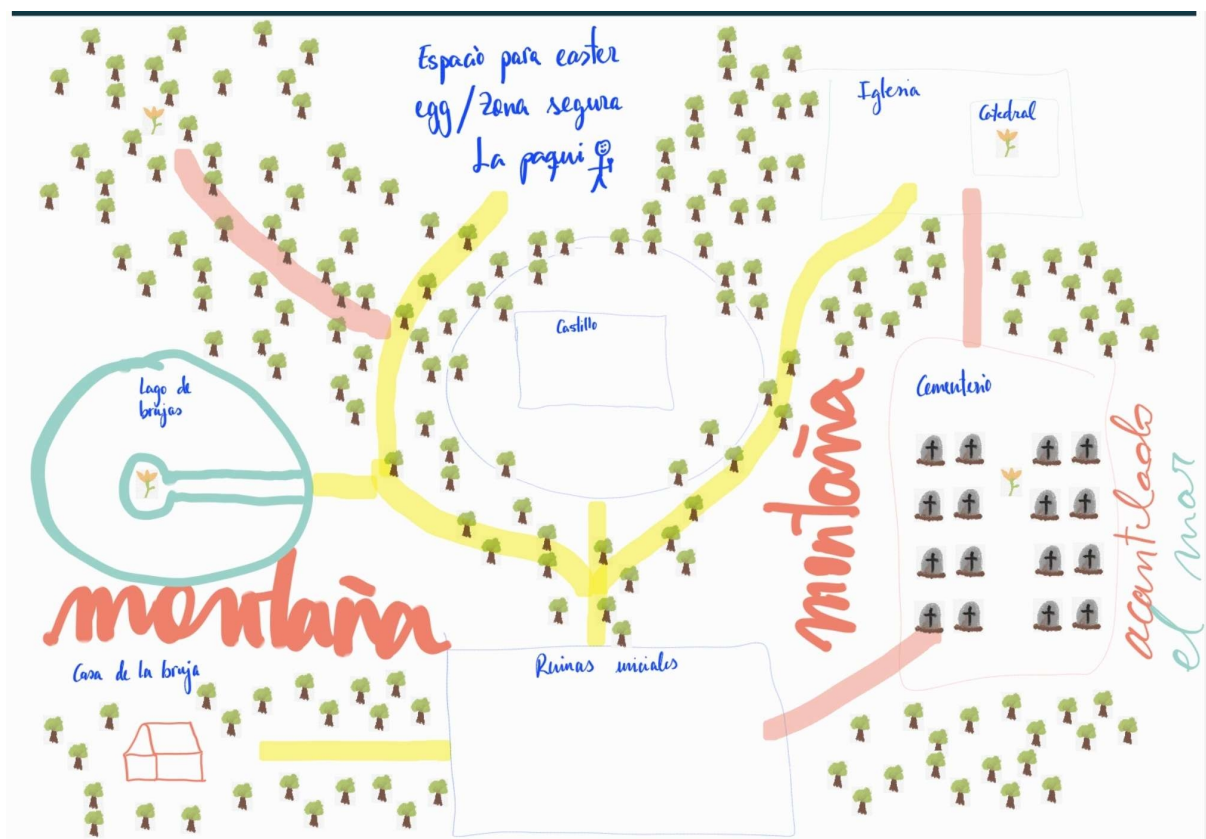 Espacio para easter
egg/Zona segura
La paqui
Iglesia
Catedral
Castillo
Lago de
brujas
Cementerio
montaña
montaña
acantilado
el mar
Casa de la bruja
Ruinas iniciales